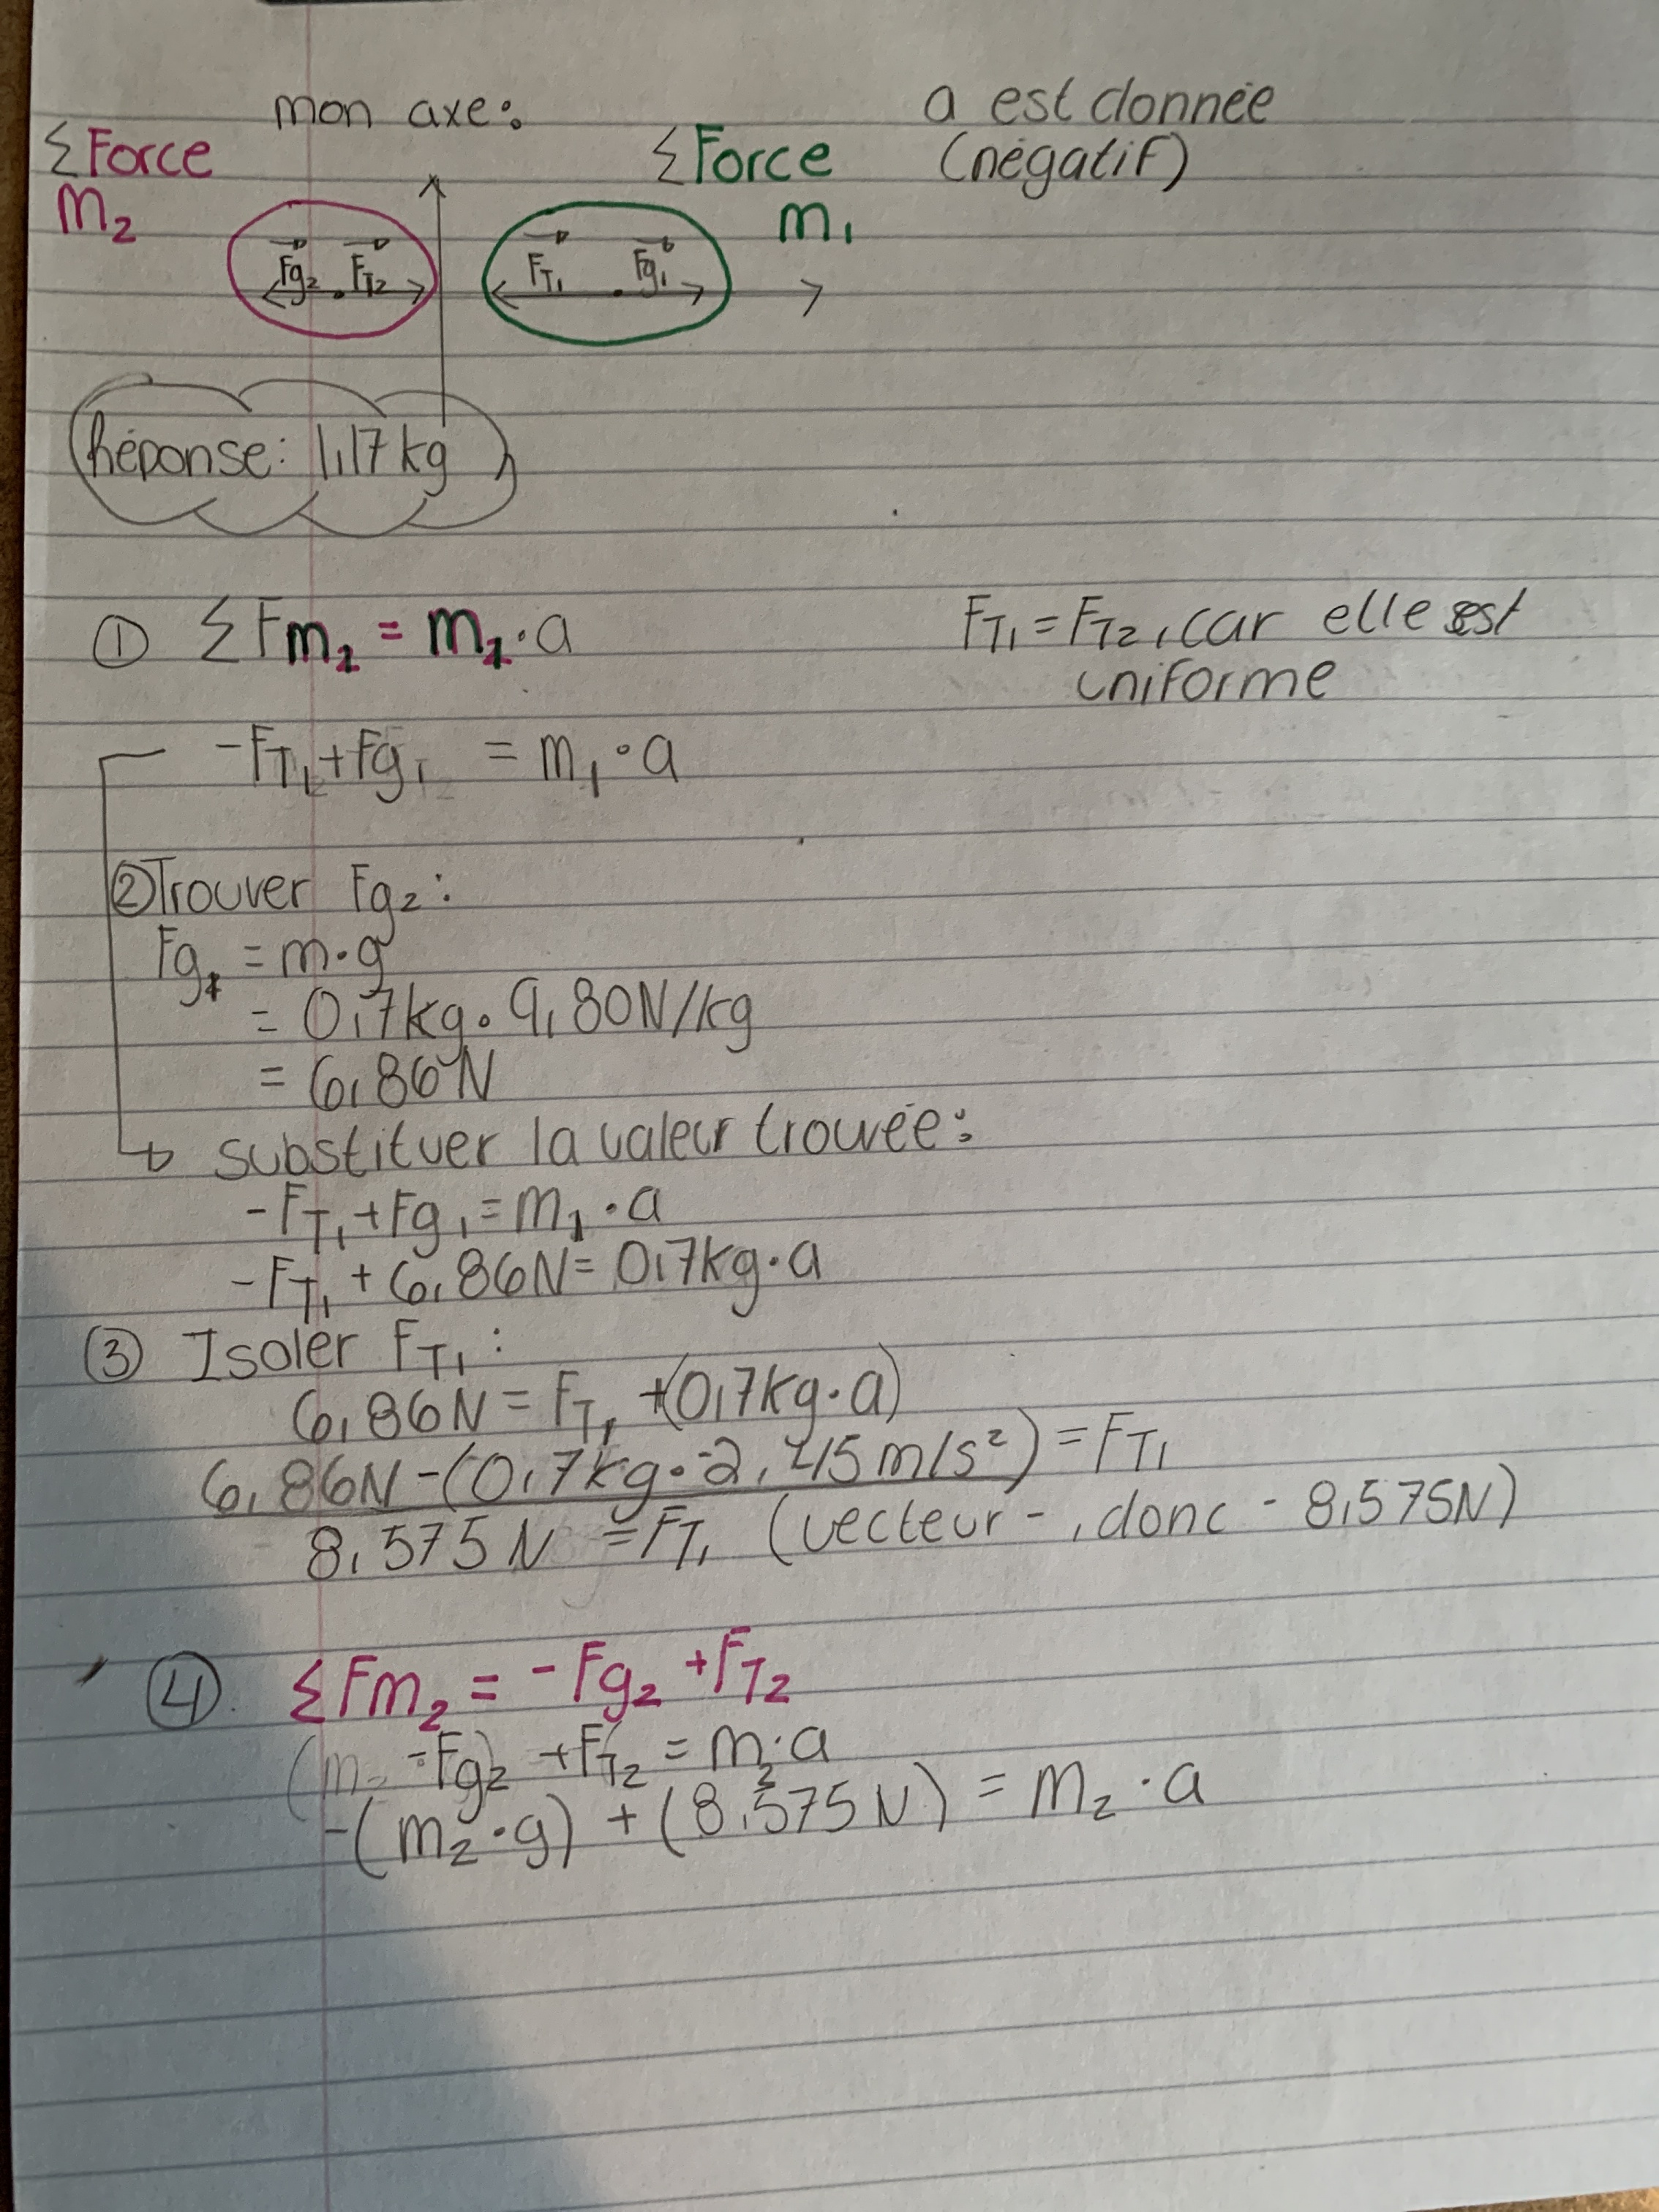 mon axe:
a est donnée
(négatif)
ΣForce
m₂
ΣForce
m₁
Fg₂ FT₂
FT₁ Fg₁
Réponse: 1,17 kg
① ΣFm₁ = m₁·a
FT₁ = FT₂, car elle est
uniforme
-FT₁+Fg₁ = m₁·a
② Trouver Fg₂:
Fg₁ = m·g
= 0,7kg·9,80N/kg
= 6,86N
↳ substituer la valeur trouvée:
-FT₁+Fg₁=m₁·a
-FT₁+6,86N=0,7kg·a
③ Isoler FT₁:
6,86N=FT₁+(0,7kg·a)
6,86N-(0,7kg·-2,45m/s²)=FT₁
8,575N=FT₁ (vecteur -, donc -8,575N)
④ ΣFm₂ = -Fg₂ +FT₂
-Fg₂ +FT₂ = m₂·a
-(m₂·g)+(8,575N) = m₂·a